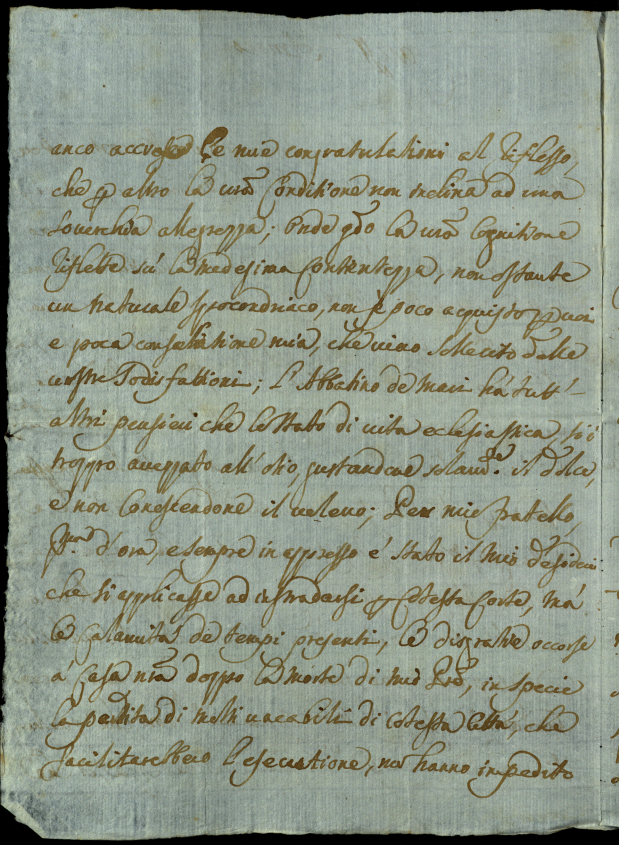 anco accresce le mie congratulationi al riflesso,
che p altro la vrã Conditione non inclina ad una
soverchia allegrezza; onde qdo la vrã Cognitione
riflette sù la medesima Contentezza, non ostante
un naturale ipocondriaco, non è poco acquisto p voi
e poca consolatione mia, che vivo sollecito delle
vostre sodisfattioni; L'Abbatino de Mari hà tutt'
altri pensieri che lo stato di vita ecclesiastica, si è
troppo avezzato all'otio, gustandone solam.te il dolce,
e non Conoscendone il veleno; Per mio fratello,
p.ma d'ora, e sempre in appresso è stato il mio desiderio
che si applicasse ad instradarsi p Cotesta Corte, mà
le Calamità de tempi presenti, le disgratie occorse
à Casa nrã doppo la morte di mio Prẽ, in specie
la perdita di molti vacabili di Cotesta Città, che
facilitarebbero l'esecutione, ne hanno impedito